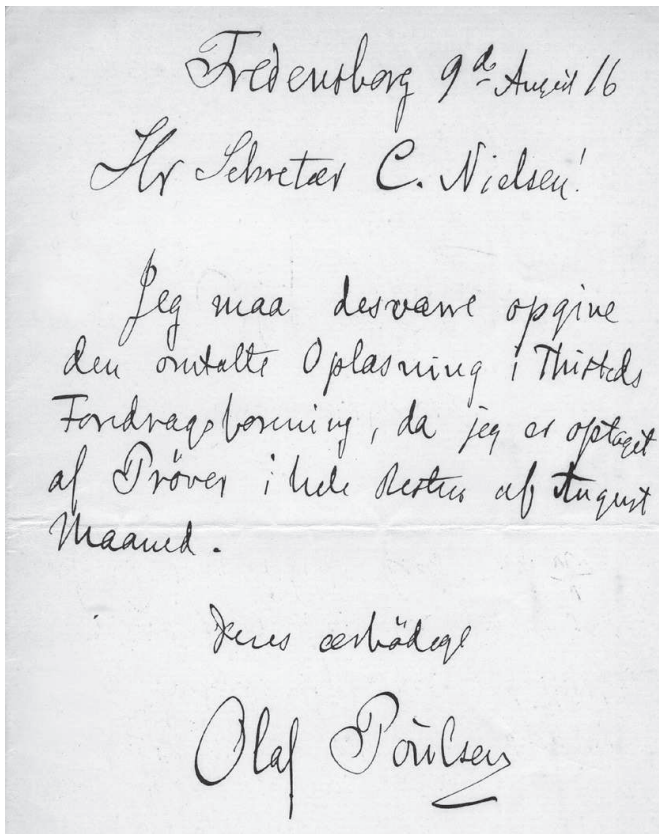 Fredensborg 9d August 16
Hr Sekretær C. Nielsen!
Jeg maa desværre opgive
den omtalte Oplæsning i Thisteds
Foredragsforening, da jeg er optaget
af Pröver i hele Resten af August
Maaned.
Deres ærbödige
Olaf Poulsen